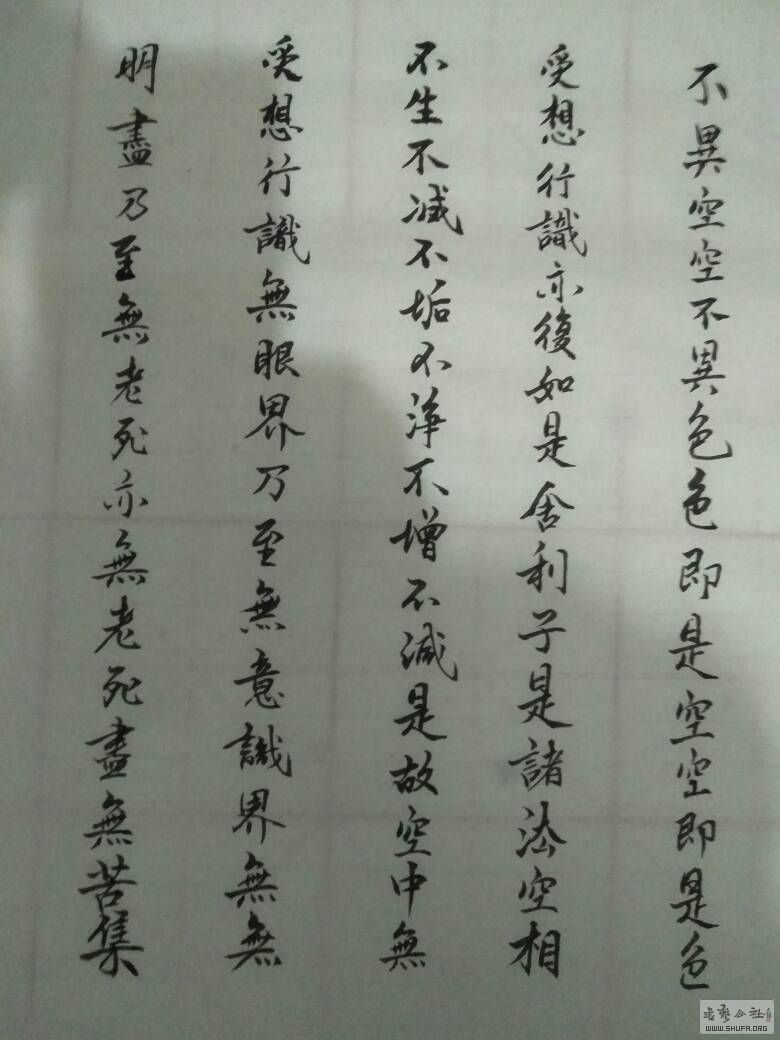 不異空空不異色色即是空空即是色
受想行識亦復如是舍利子是諸法空相
不生不滅不垢不淨不增不減是故空中無
受想行識無眼界乃至無意識界無無
明盡乃至無老死亦無老死盡無苦集
书艺公社
WWW.SHUFA.ORG